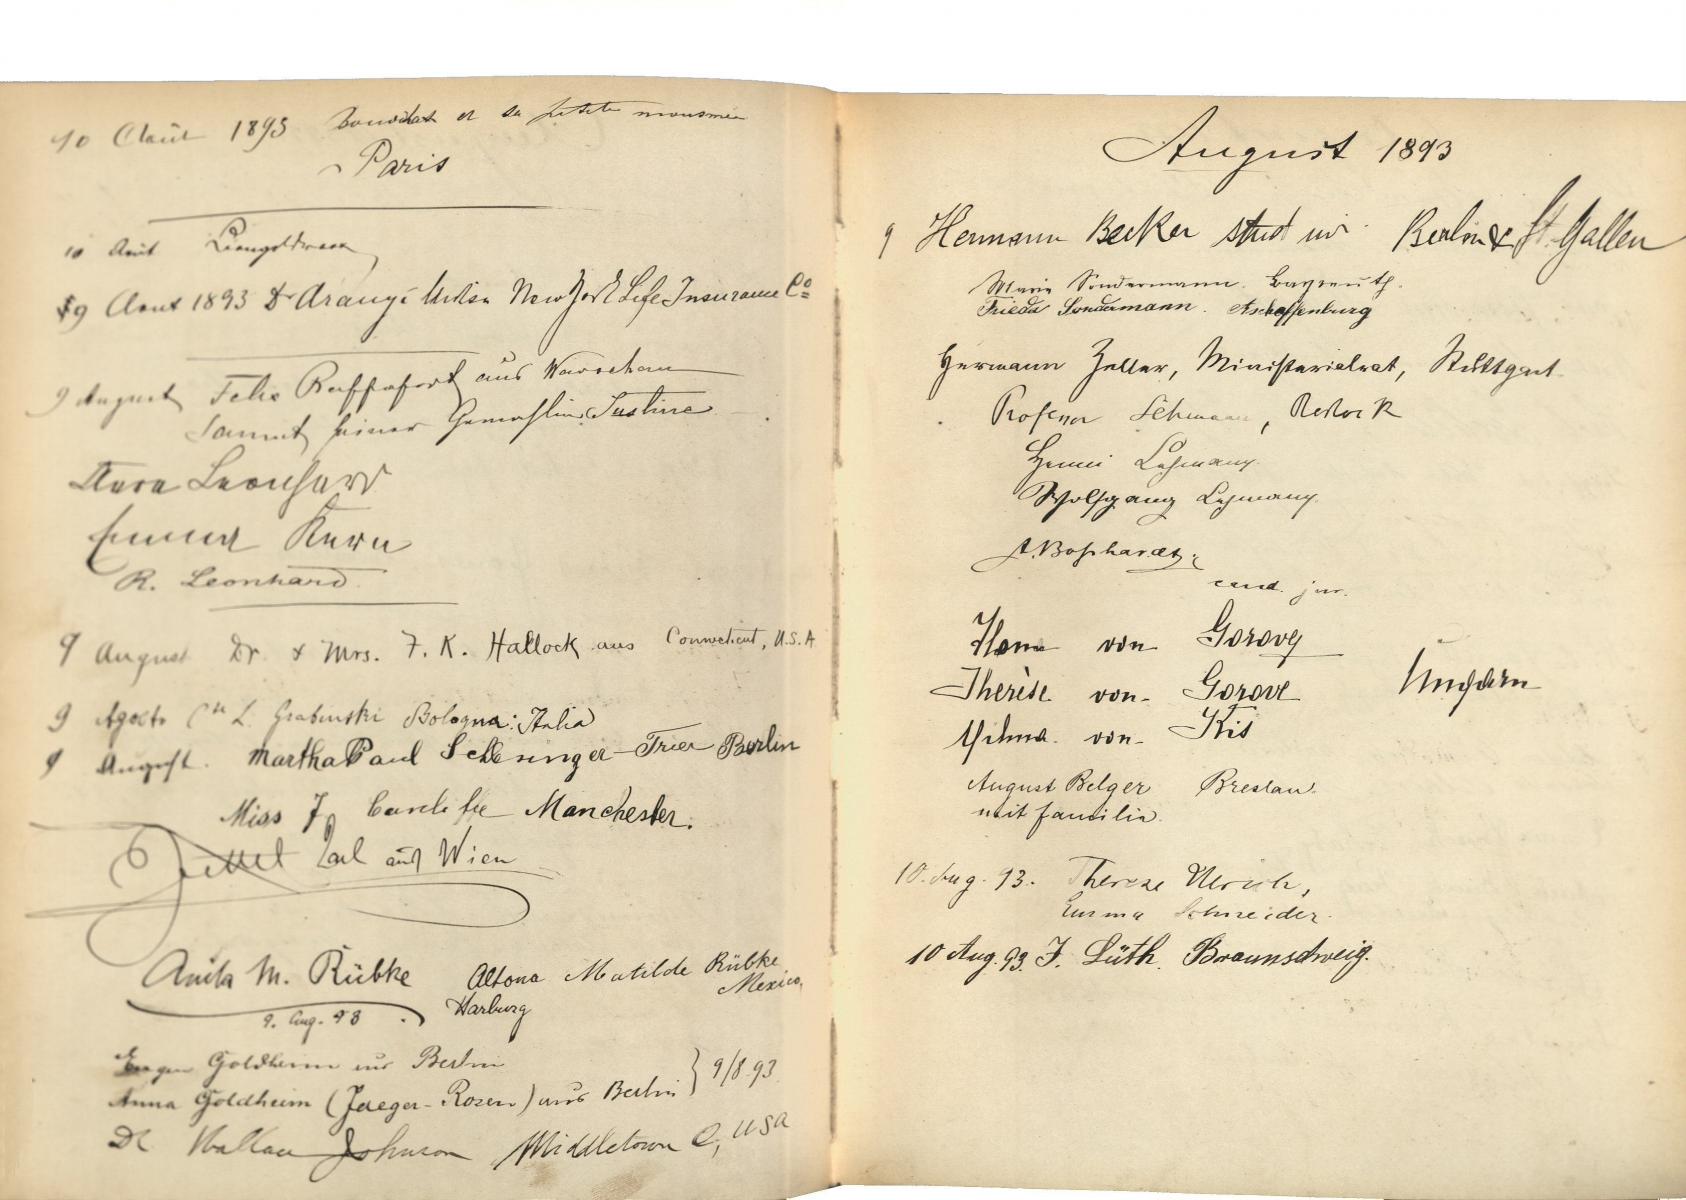 10 Août 1893 et sa petite mousmée
Paris
10 Août
9 Aout 1893 Dr Aranyi New York Life Insurance Co
9 August Felix Rappaport aus Warschau
sammt seiner Gemahlin Justine
Anna Leonhard
Emma Kern
R. Leonhard
9 August Dr. & Mrs. F. K. Hallock aus Connecticut, U.S.A
9 Agosto Cte L. Grabinski Bologna: Italia
9 August. Martha Paul Schlesinger-Trier Berlin
Miss J. Manchester.
Zittel Carl aus Wien
Anita M. Rübke Altona Matilde Rübke
Harburg Mexico.
9. Aug. 93
Eugen Goldheim aus Berlin } 9/8.93
Anna Goldheim (Jaeger-Rosen) aus Berlin
Dr Wallace Johnson Middletown C, USA
August 1893
9 Hermann Becker stud iur. Berlin & St. Gallen
Marie Sondermann. Bayreuth.
Frieda Sondermann. Aschaffenburg
Hermann Zeller, Ministerialrat, Stuttgart.
Professor Lehmann, Rostock
Henni Lehmann.
Wolfgang Lehmann.
A. Boßhardt,
cand. jur.
Ilona von Gorove
Therèse von Gorove Ungarn
Vilma von Kis
August Belger Breslau.
mit Familie.
10. Aug. 93. Therese Ulrich,
Emma Schneider.
10 Aug. 93. F. Lüth. Braunschweig.